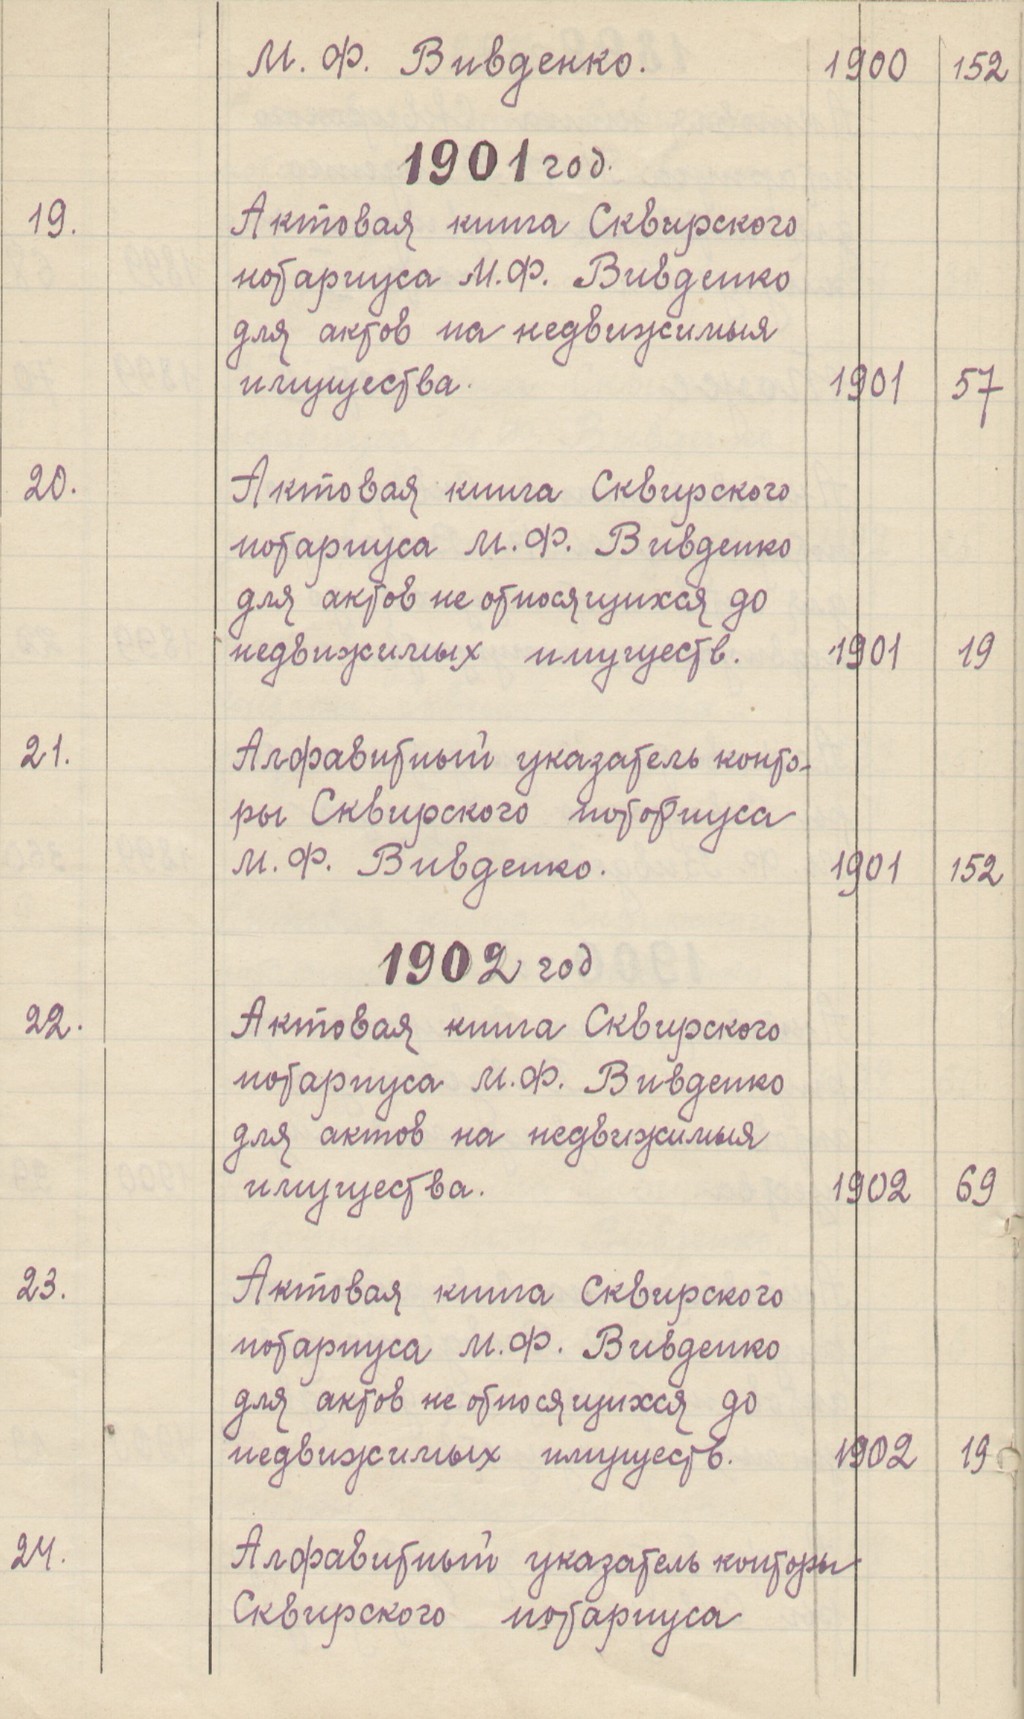 М. Ф. Вивденко. 1900 152
1901 год.
19. Актовая книга Сквирского
нотариуса М.Ф. Вивденко
для актов на недвижимыя
имущества. 1901 57
20. Актовая книга Сквирского
нотариуса М.Ф. Вивденко
для актов не относящихся до
недвижимых имуществ. 1901 19
21. Алфавитный указатель конто-
ры Сквирского ноториуса
М.Ф. Вивденко. 1901 152
1902 год
22. Актовая книга Сквирского
нотариуса М.Ф. Вивденко
для актов на недвижимыя
имущества. 1902 69
23. Актовая книга Сквирского
нотариуса М.Ф. Вивденко
для актов не относящихся до
недвижимых имуществ. 1902 19
24. Алфавитный указатель конторы
Сквирского нотариуса